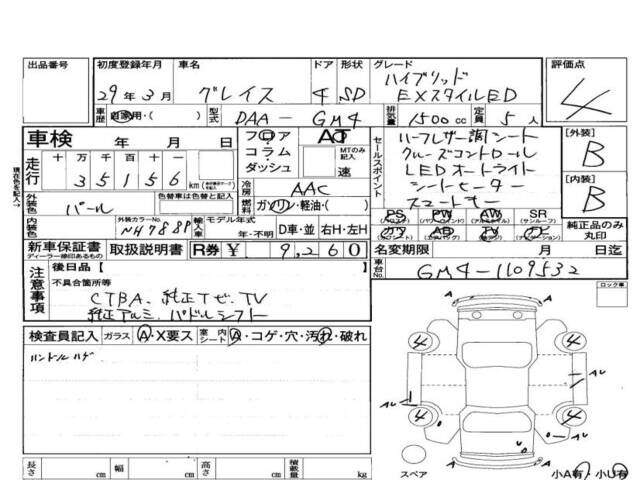 出品番号
初度登録年月 車名 ドア 形状 グレード 評価点
29年3月 グレイス 4 SD ハイブリッド
EXスタイルED
4
車歴 自家用・( ) 型式 DAA-GM4 排気量 1500cc 定員 5人
車検 年 月 日
フロア コラム ダッシュ AT MTのみ記入 速
セールスポイント
ハーフレザー調シート
クルーズコントロール
LEDオートライト
シートヒーター
スマートキー
[外装] B
[内装] B
現在色を記入→
走行 十 万 千 百 十 一
35156 km
冷房 AAC
外装色 パール 色替車は色替と記入
燃料 ガソリン・軽油・( )
PS PW AW SR
純正品のみ丸印
内装色 外装カラーNo. NH788P 輸入車 モデル年式 年・不明 D車・並 右H・左H
新車保証書 ディーラー捺印あるもの 取扱説明書 R券 ¥ 9,260
名変期限 月 日迄
車台No. GM4-1109532
注意事項 後日品【 】
不具合箇所等
CTBA. 純正ナビ. TV
純正アルミ. パドルシフト
ロック車
検査員記入 ガラス A・X要ス 室内シート A・コゲ・穴・汚れ・破れ
ハンドルハゲ
4 4
AU AU
4 4
U
AU
スペア
小A有・小U有
長さ cm 幅 cm 高さ cm 積載量 kg